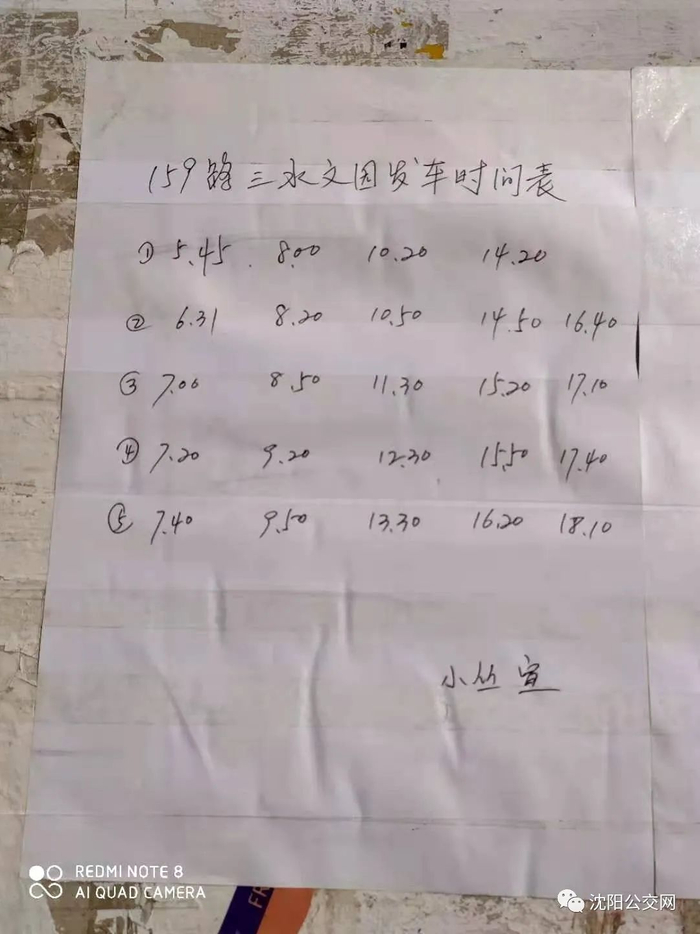 159路三水文园发车时间表
① 5.45 8.00 10.20 14.20
② 6.31 8.20 10.50 14.50 16.40
③ 7.00 8.50 11.30 15.20 17.10
④ 7.20 9.20 12.30 15.50 17.40
⑤ 7.40 9.50 13.30 16.20 18.10
小丛宣
REDMI NOTE 8
AI QUAD CAMERA
沈阳公交网
FR